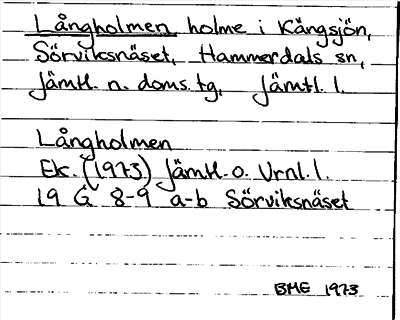 Långholmen holme i Kångsjön,
Sörviksnäset, Hammerdals sn,
Jämtl. n. doms. tg, Jämtl. l.
Långholmen
Ek. (1973) Jämtl. o. Vrnl. l.
19 G 8-9 a-b Sörviksnäset
BME 1973